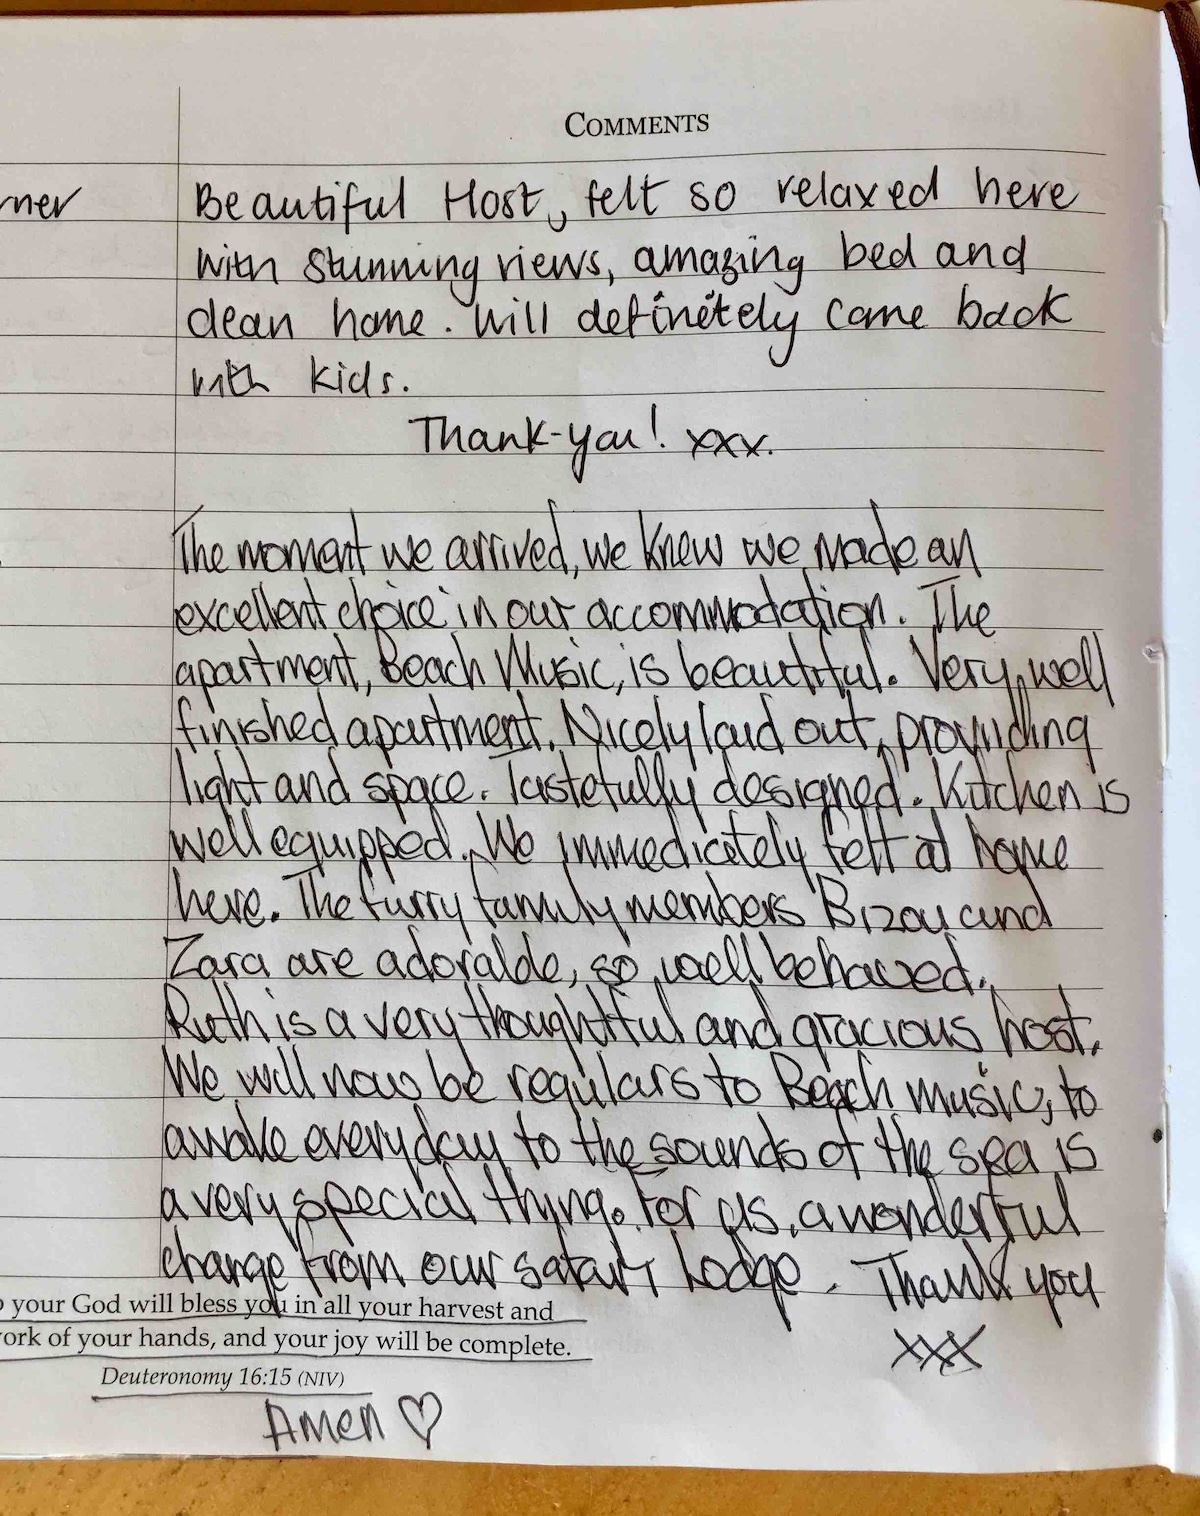 COMMENTS
rner
Beautiful Host, felt so relaxed here
with stunning views, amazing bed and
clean home. Will definetely come back
with kids.
Thank-you! xxx.
The moment we arrived, we knew we made an
excellent choice in our accommodation. The
apartment, Beach Music, is beautiful. Very well
finished apartment. Nicely laid out, providing
light and space. Tastefully designed. Kitchen is
well equipped. We immedicetely felt at home
here. The furry family members Bizou and
Zara are adorable, so well behaved.
Ruth is a very thoughtful and gracious host.
We will now be regulars to Beach Music, to
awake everyday to the sounds of the sea is
a very special thing. For us, a wonderful
change from our safari Lodge. Thank you
xxx
o your God will bless you in all your harvest and
ork of your hands, and your joy will be complete.
Deuteronomy 16:15 (NIV)
Amen ♡